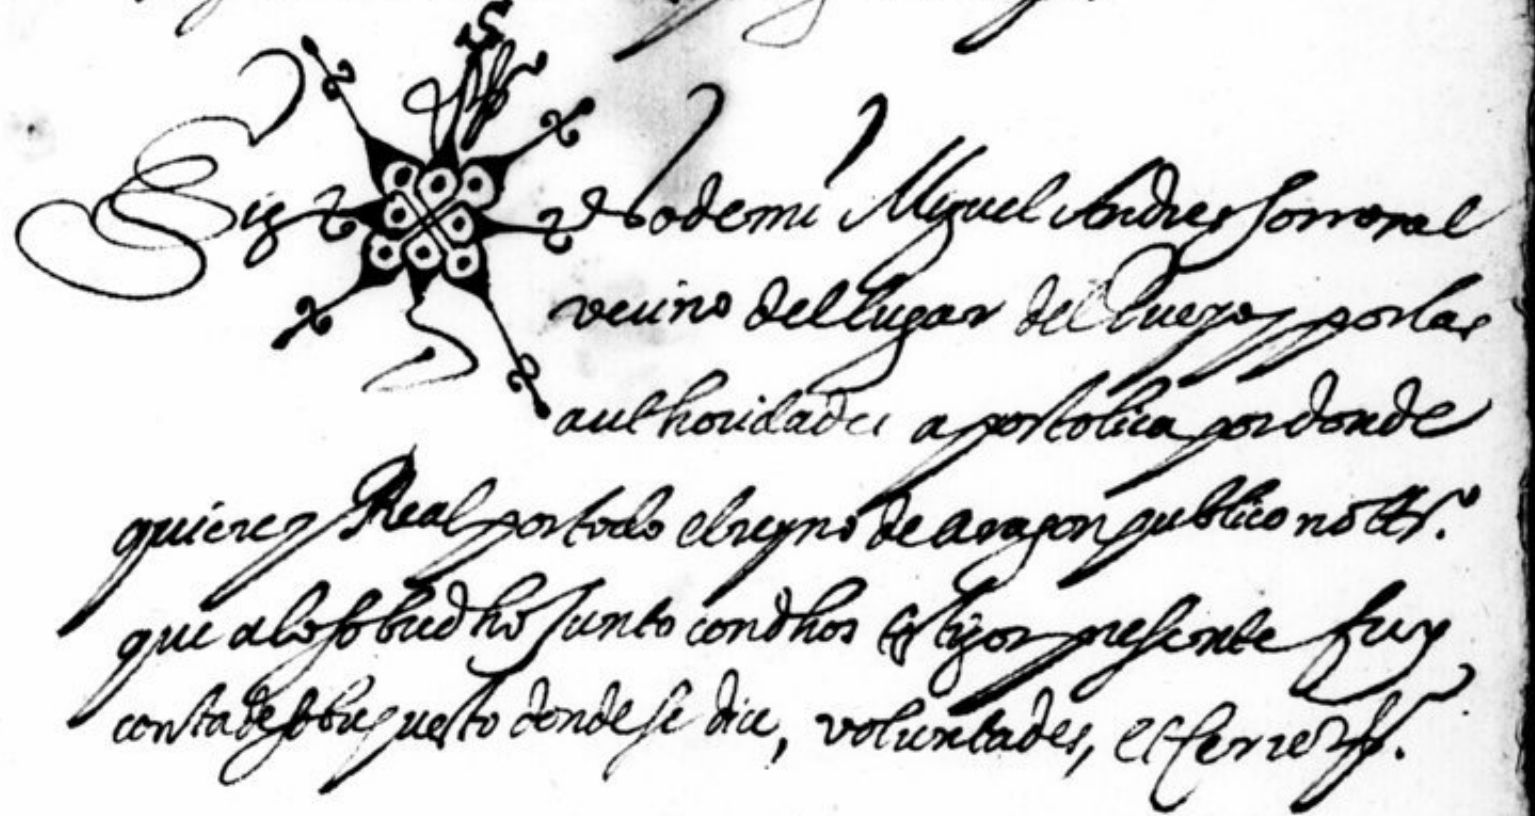 Sig no de mi Miguel Andres Sorrosal
vecino del lugar del Pueyo y por las
authoridades apostolica por donde
quiere y Real por todo el reyno de aragon publico nottº.
que a lo sobredho junto con dhos testigos presente fuy
consta de sobrepuesto donde se dice, voluntades, et cerre.